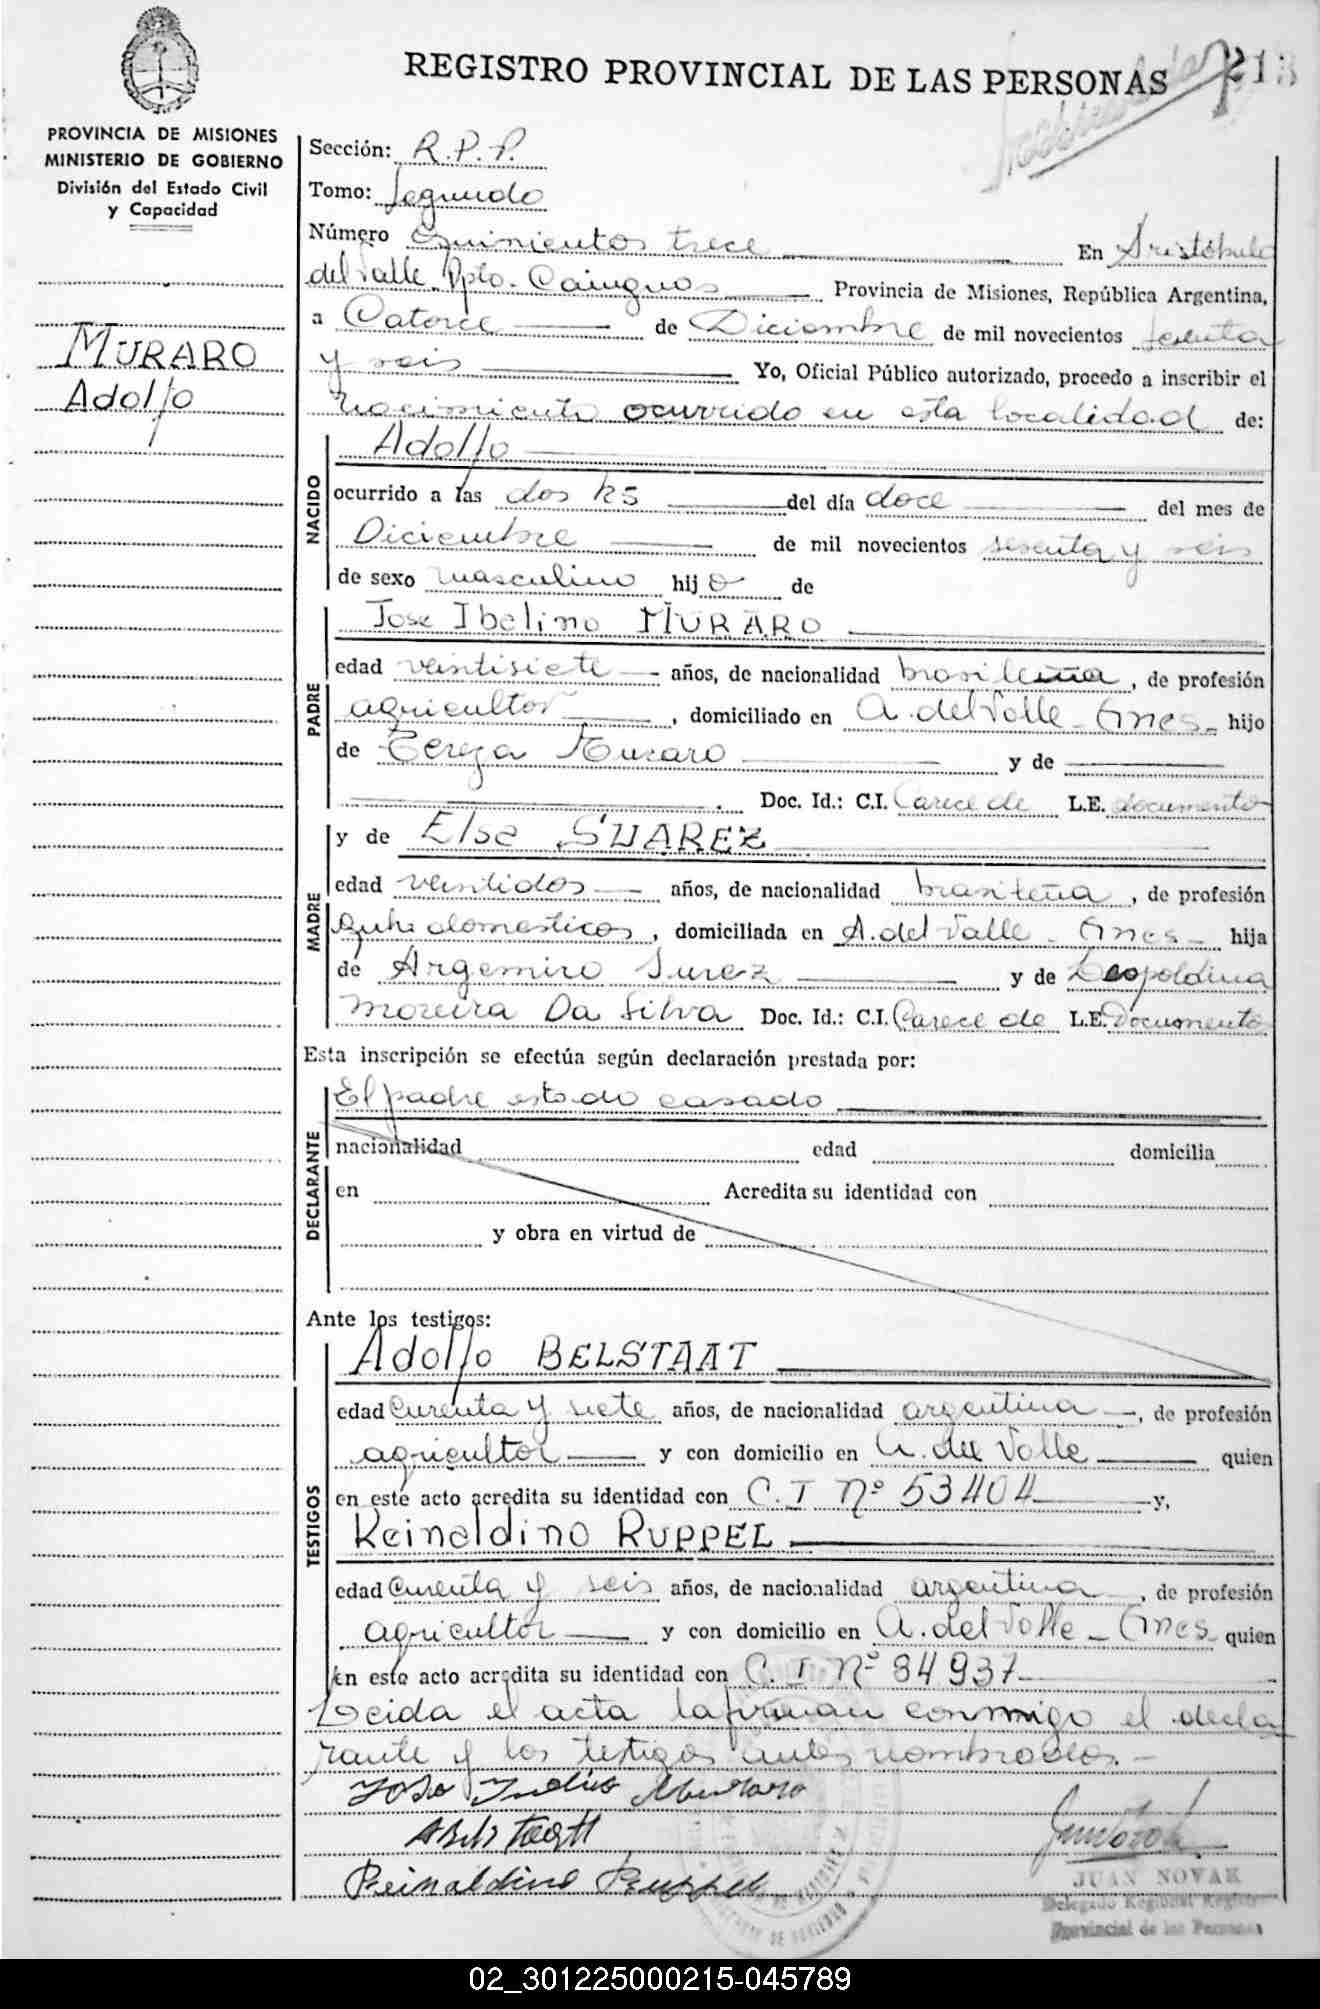 REGISTRO PROVINCIAL DE LAS PERSONAS
213
PROVINCIA DE MISIONES
MINISTERIO DE GOBIERNO
División del Estado Civil
y Capacidad
MURARO
Adolfo
Sección: R.P.P.
Tomo: Segundo
Número Quinientos trece En Aristóbulo
del Valle Dpto. Cainguas Provincia de Misiones, República Argentina,
a Catorce de Diciembre de mil novecientos sesenta
y seis Yo, Oficial Público autorizado, procedo a inscribir el
nacimiento ocurrido en esta localidad de:
NACIDO
Adolfo
ocurrido a las dos hs del día doce del mes de
Diciembre de mil novecientos sesenta y seis
de sexo masculino hijo de
PADRE
Jose Ibelino MURARO
edad veintisiete años, de nacionalidad brasileña, de profesión
agricultor, domiciliado en A. del Valle - hijo
de Tereza Muraro y de
Doc. Id.: C.I. Carece de L.E. documento
y de Elsa SUAREZ
MADRE
edad veintidos años, de nacionalidad brasileña, de profesión
domesticos, domiciliada en A. del Valle - hija
de Argemiro Surez y de Leopoldina
Moreira Da Silva Doc. Id.: C.I. Carece de L.E. Documento
Esta inscripción se efectúa según declaración prestada por:
DECLARANTE
El padre estado casado
nacionalidad edad domicilia
en Acredita su identidad con
y obra en virtud de
Ante los testigos:
TESTIGOS
Adolfo BELSTAAT
edad Curenta y siete años, de nacionalidad argentina, de profesión
agricultor y con domicilio en A. del Valle quien
en este acto acredita su identidad con C. I Nº 53404 y,
Reinaldino RUPPEL
edad Curenta y seis años, de nacionalidad argentina, de profesión
agricultor y con domicilio en A. del Valle - quien
en este acto acredita su identidad con C. I Nº 84937
Leida el acta la firman conmigo el decla
rante y los testigos antes nombrados.-
Muraro
Reinaldino Ruppel
JUAN NOVAK
Delegado Regional Registro
Provincial de las Personas
02_301225000215-045789